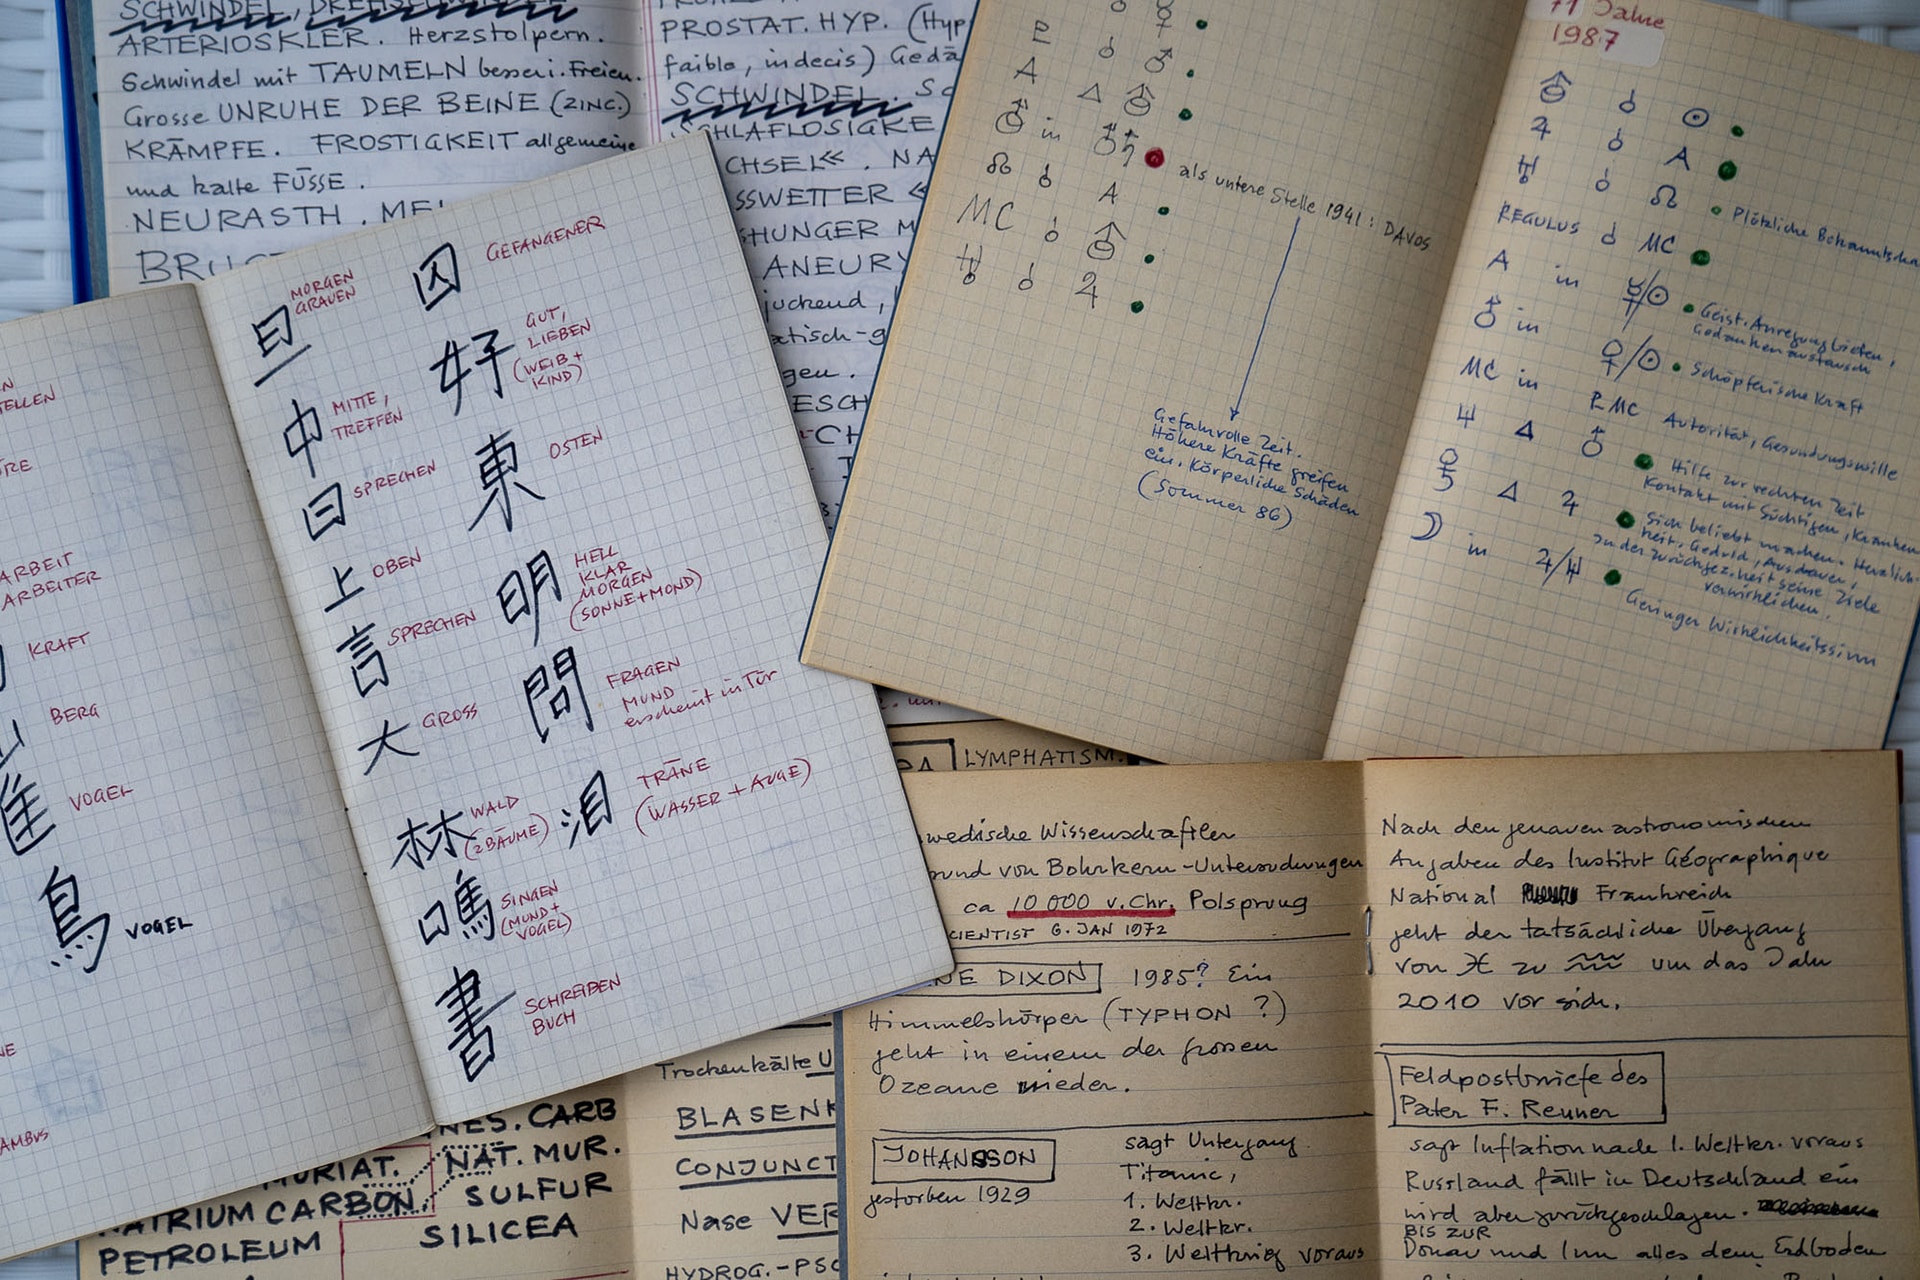 SCHWINDEL, DREHSCHWINDEL
ARTERIOSKLER. Herzstolpern.
Schwindel mit TAUMELN besser i. Freien.
Grosse UNRUHE DER BEINE (ZINC.)
KRÄMPFE. FROSTIGKEIT allgemeine
und kalte FÜSSE.
NEURASTH. MEL
PROSTAT. HYP. (Hyp
faible, indecis) Gedä
SCHWINDEL. Sc
SCHLAFLOSIGKE
CHSEL«. NA
SSWETTER «
HUNGER M
ANEURY
juckend,
atisch-g
gen.
ESCH
CH
旦 MORGEN
GRAUEN
囚 GEFANGENER
好 GUT,
LIEBEN
(WEIB+
KIND)
中 MITTE,
TREFFEN
東 OSTEN
曰 SPRECHEN
上 OBEN
明 HELL
KLAR
MORGEN
(SONNE+MOND)
言 SPRECHEN
問 FRAGEN
MUND
erscheint in Tür
大 GROSS
林 WALD
(2BÄUME)
泪 TRÄNE
(WASSER + AUGE)
鳴 SINGEN
(MUND+
VOGEL)
書 SCHREIBEN
BUCH
ELLEN
ARBEIT
ARBEITER
KRAFT
BERG
隹 VOGEL
鳥 VOGEL
AMBUS
A △
♂ in
☊ ☌ A
MC ☌
♅ ☌ ♃
als untere Stelle 1941: DAVOS
Gefahrvolle Zeit.
Höhere Kräfte greifen
ein. Körperliche Schäden
(Sommer 86)
71 Jahre
1987
☌ ☉
♃ ☌ A
♅ ☌ ☊ Plötzliche Bekanntscha
REGULUS ☌ MC
A in ☿/☉ Geist. Anregung bieten,
Gedankenaustausch
♂ in ♀/☉ Schöpferische Kraft
MC in MC Autorität, Gesundungswille
♆ △ ♂ Hilfe zur rechten Zeit
Kontakt mit Süchtigen, Kranken
△ ♃ Sich beliebt machen. Herzlich-
keit, Geduld, Ausdauer,
In der Zurückgez.heit seine Ziele
verwirklichen.
☽ in ♃/♆ Geringer Wirklichkeitssinn
LYMPHATISM.
wedische Wissenschaftler
rund von Bohrkern-Untersuchungen
ca 10 000 v. Chr. Polsprung
CIENTIST 6. JAN 1972
NE DIXON 1985? Ein
Himmelskörper (TYPHON ?)
geht in einem der grossen
Ozeane nieder.
JOHANSSON
gestorben 1929
sagt Untergang
Titanic,
1. Weltkr.
2. Weltkr.
3. Weltkrieg voraus
Nach den genauen astronomischen
Angaben des Institut Géographique
National Frankreich
geht der tatsächliche Übergang
von ♓ zu ♒ um das Jahr
2010 vor sich.
Feldpostbriefe des
Pater F. Renner
sagt Inflation nach 1. Weltkr. voraus
Russland fällt in Deutschland ein
wird aber zurückgeschlagen.
BIS ZUR
Donau und Inn alles dem Erdboden
NES. CARB
MURIAT. NAT. MUR.
NATRIUM CARBON. SULFUR
PETROLEUM SILICEA
Trockenkälte U
BLASENK
CONJUNCT
Nase VER
HYDROG.-PSO